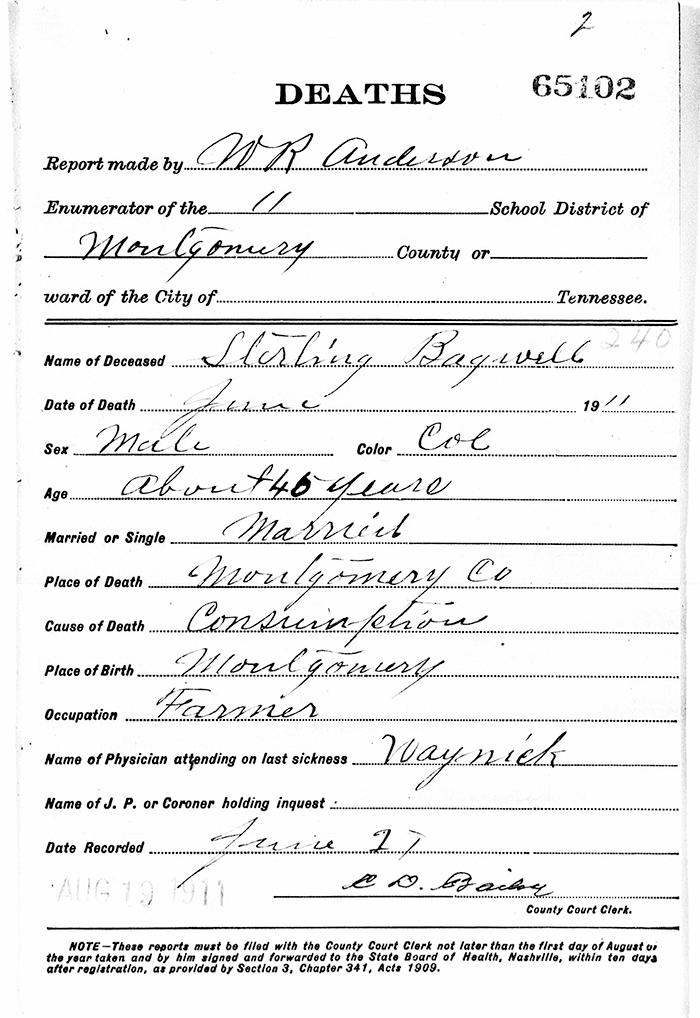 2
DEATHS 65102
Report made by W R Anderson
Enumerator of the 11 School District of
Montgomery County or
ward of the City of Tennessee.
240
Name of Deceased Sterling Bagwell
Date of Death June 1911
Sex Male Color Col
Age About 45 years
Married or Single Married
Place of Death Montgomery Co
Cause of Death Consumption
Place of Birth Montgomery
Occupation Farmer
Name of Physician attending on last sickness Waynick
Name of J. P. or Coroner holding inquest
Date Recorded June 27
AUG 19 1911 C D. Bailey
County Court Clerk.
NOTE—These reports must be filed with the County Court Clerk not later than the first day of August of
the year taken and by him signed and forwarded to the State Board of Health, Nashville, within ten days
after registration, as provided by Section 3, Chapter 341, Acts 1909.